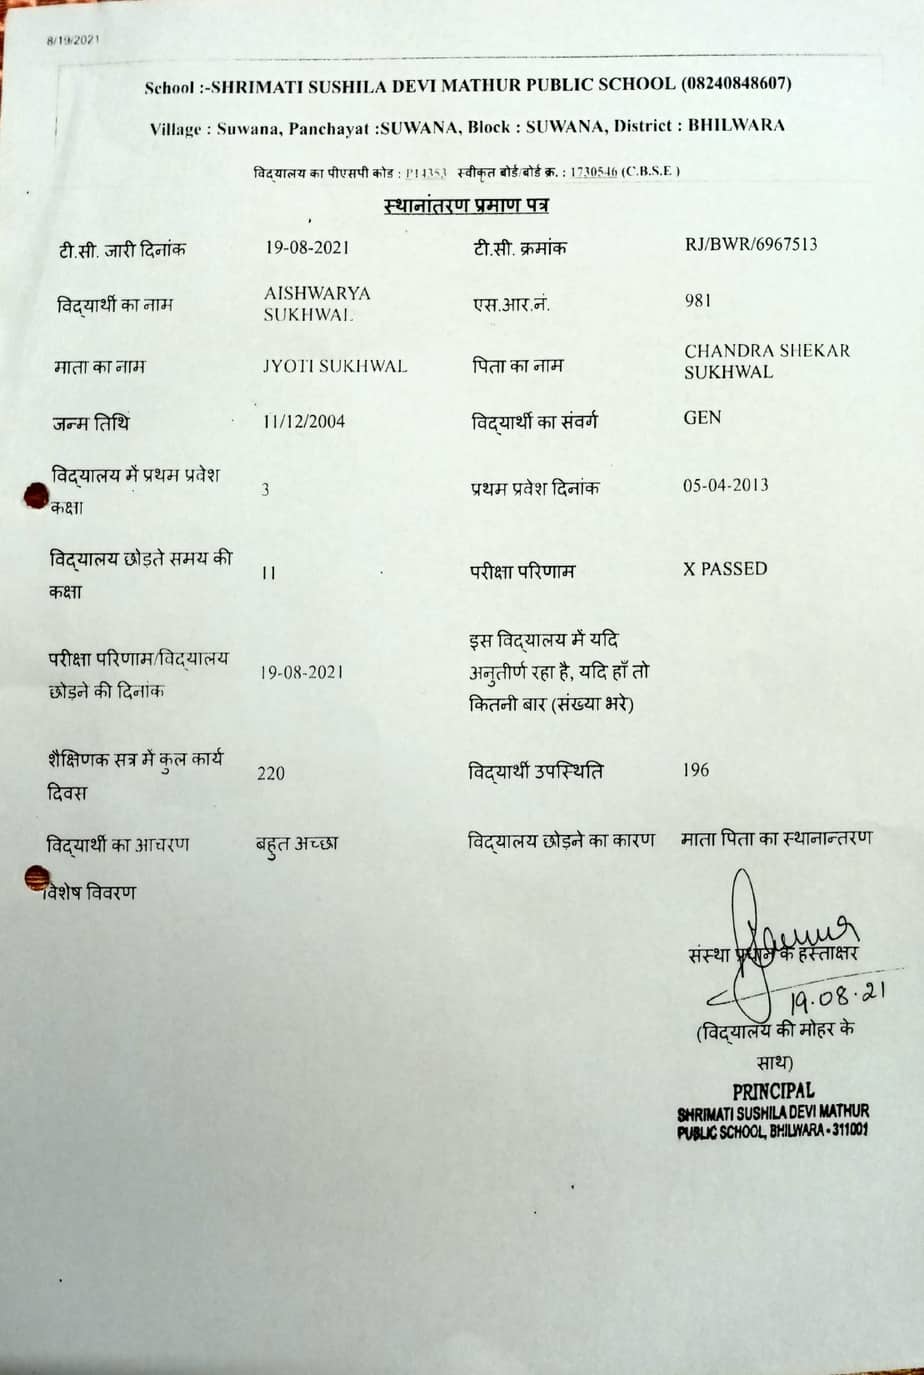 8/19/2021
School :-SHRIMATI SUSHILA DEVI MATHUR PUBLIC SCHOOL (08240848607)
Village : Suwana, Panchayat :SUWANA, Block : SUWANA, District : BHILWARA
विद्यालय का पीएसपी कोड : P14353 स्वीकृत बोर्ड/बोर्ड क्र. : 1730546 (C.B.S.E )
स्थानांतरण प्रमाण पत्र
टी.सी. जारी दिनांक 19-08-2021 टी.सी. क्रमांक RJ/BWR/6967513
विद्यार्थी का नाम AISHWARYA SUKHWAL एस.आर.नं. 981
माता का नाम JYOTI SUKHWAL पिता का नाम CHANDRA SHEKAR SUKHWAL
जन्म तिथि 11/12/2004 विद्यार्थी का संवर्ग GEN
विद्यालय में प्रथम प्रवेश
कक्षा 3 प्रथम प्रवेश दिनांक 05-04-2013
विद्यालय छोड़ते समय की
कक्षा 11 परीक्षा परिणाम X PASSED
परीक्षा परिणाम/विद्यालय
छोड़ने की दिनांक 19-08-2021
इस विद्यालय में यदि
अनुतीर्ण रहा है, यदि हाँ तो
कितनी बार (संख्या भरे)
शैक्षिणक सत्र में कुल कार्य
दिवस 220 विद्यार्थी उपस्थिति 196
विद्यार्थी का आचरण बहुत अच्छा विद्यालय छोड़ने का कारण माता पिता का स्थानान्तरण
विशेष विवरण
संस्था प्रधान के हस्ताक्षर
19.08.21
(विद्यालय की मोहर के
साथ)
PRINCIPAL
SHRIMATI SUSHILA DEVI MATHUR
PUBLIC SCHOOL, BHILWARA-311001